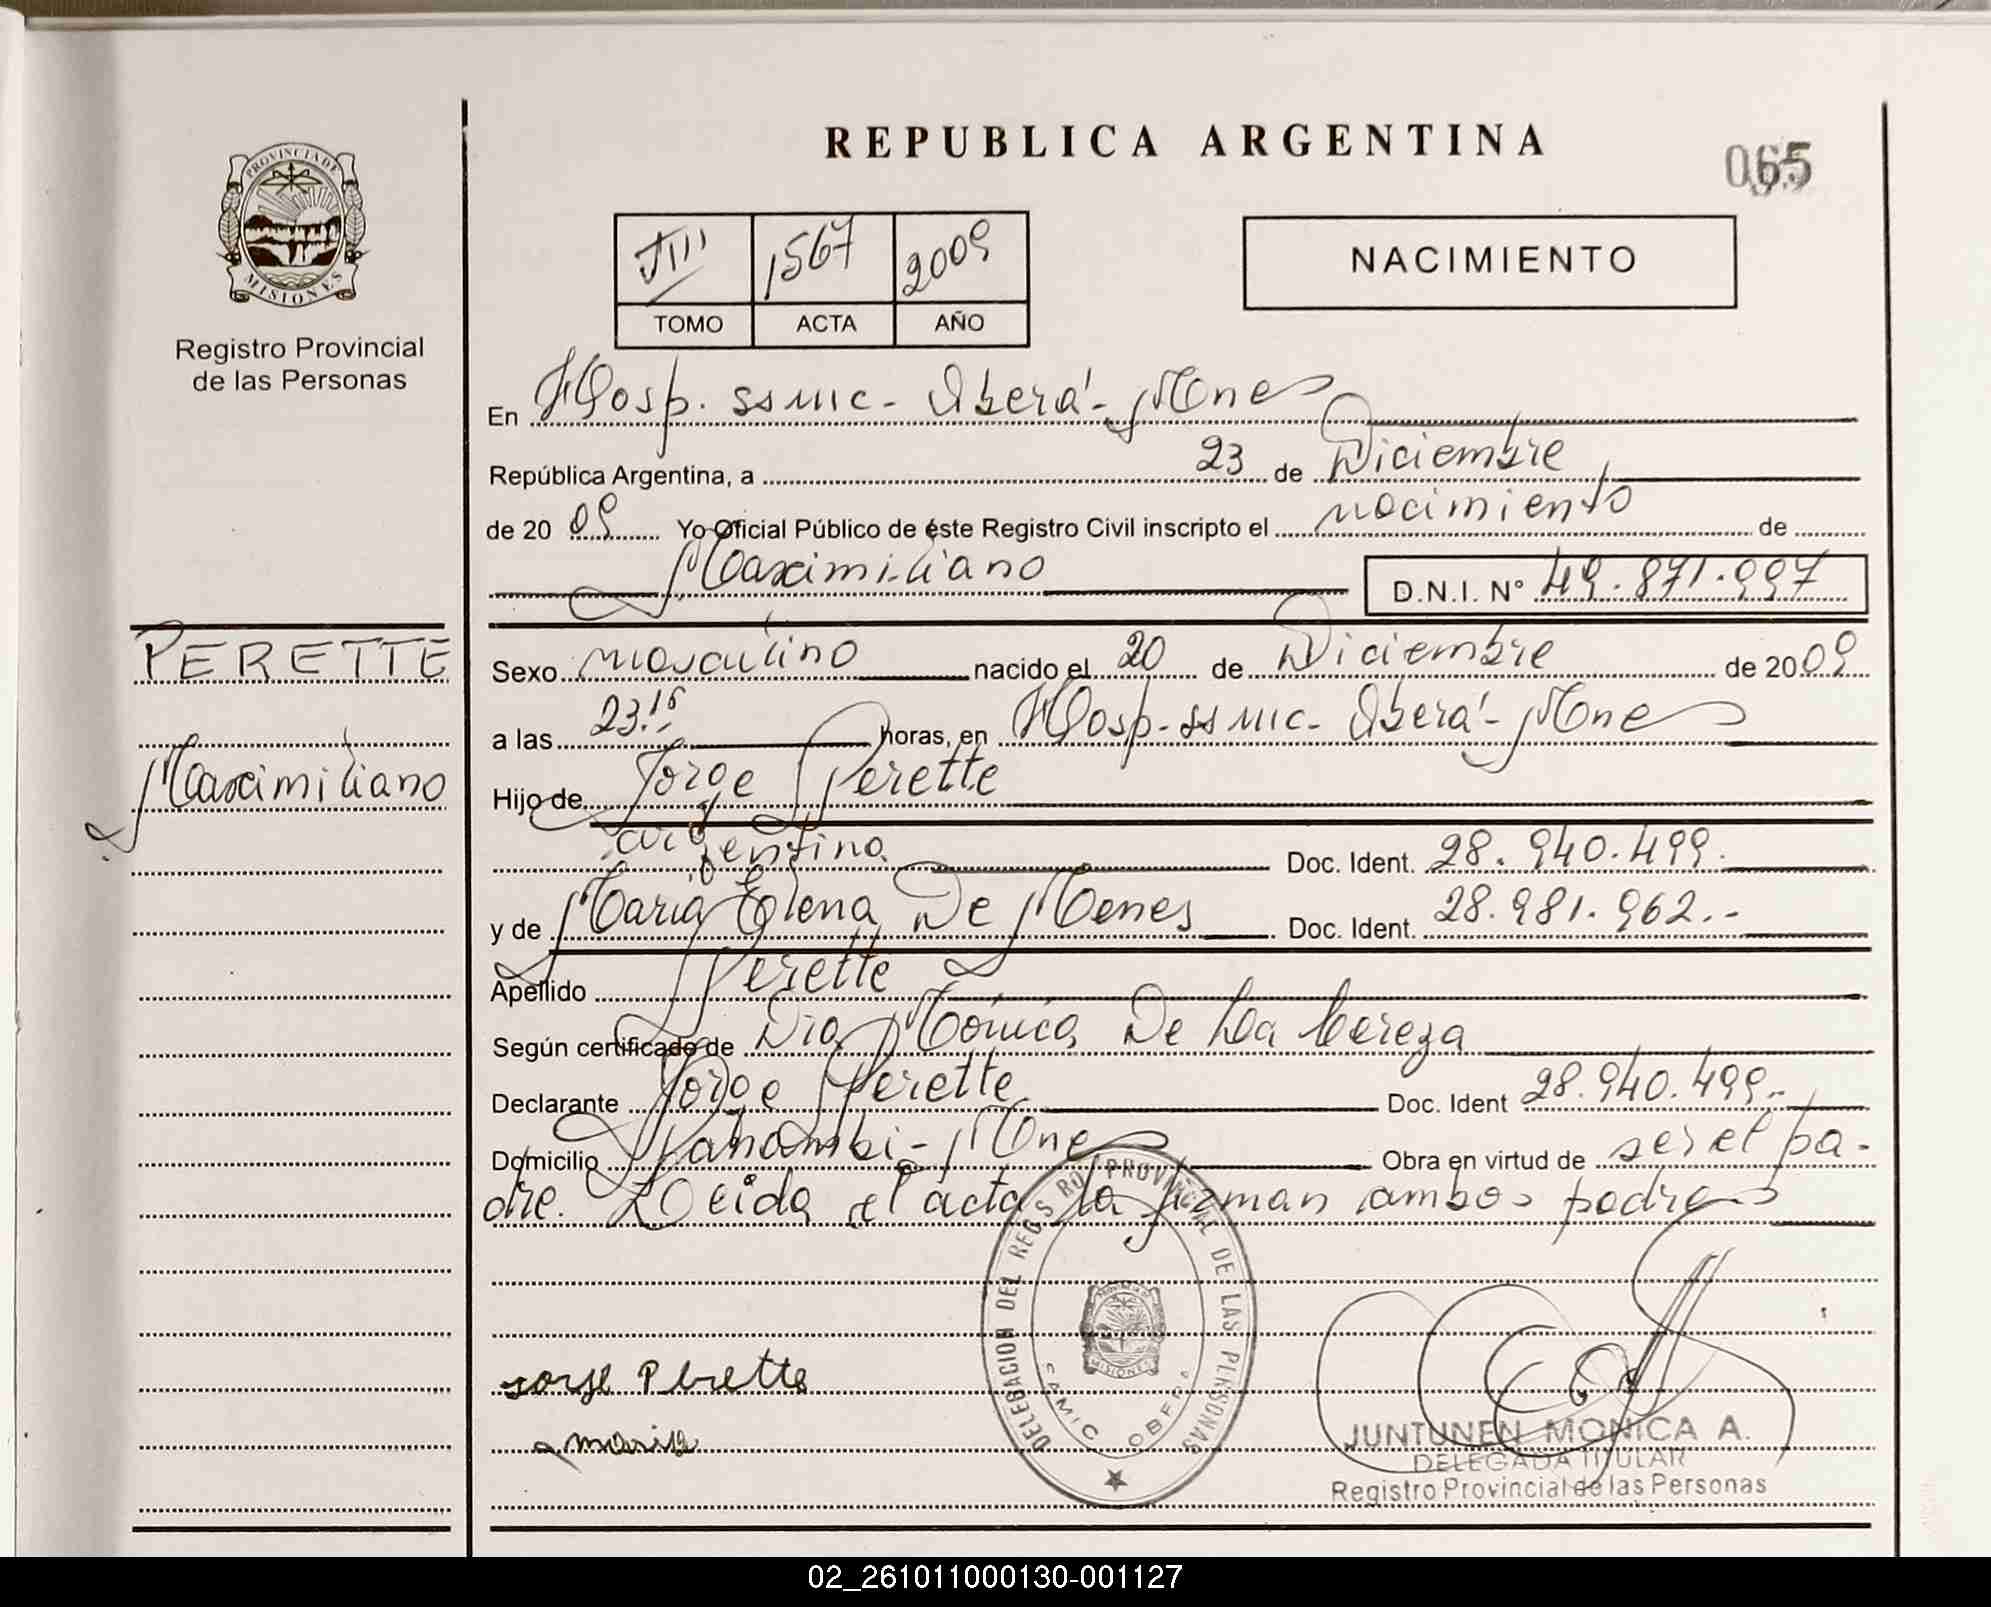 REPUBLICA ARGENTINA
065
PROVINCIA DE MISIONES
Registro Provincial
de las Personas
VIII 1567 2009
TOMO ACTA AÑO
NACIMIENTO
En Hosp. ssmic - Oberá - Mnes
República Argentina, a 23 de Diciembre
de 20 09 Yo Oficial Público de éste Registro Civil inscripto el nacimiento de
Maximiliano D.N.I. N° 49.871.997
PERETTE
Maximiliano
Sexo masculino nacido el 20 de Diciembre de 2009
a las 23.15 horas, en Hosp. ssmic - Oberá - Mnes
Hijo de Jorge Perette
argentino Doc. Ident. 28.940.499.
y de Maria Elena De Menes Doc. Ident. 28.981.962.-
Apellido Perette
Según certificado de Dra Mónica De La Cereza
Declarante Jorge Perette Doc. Ident 28.940.499.-
Domicilio Panambi - Mnes Obra en virtud de ser el pa-
dre. Leida el acta la firman ambos padres
DELEGACION DEL REGISTRO PROVINCIAL DE LAS PERSONAS
SAMIC OBERA
MISIONES
Jorge Perette
maria
JUNTUNEN MONICA A.
DELEGADA TITULAR
Registro Provincial de las Personas
02_261011000130-001127